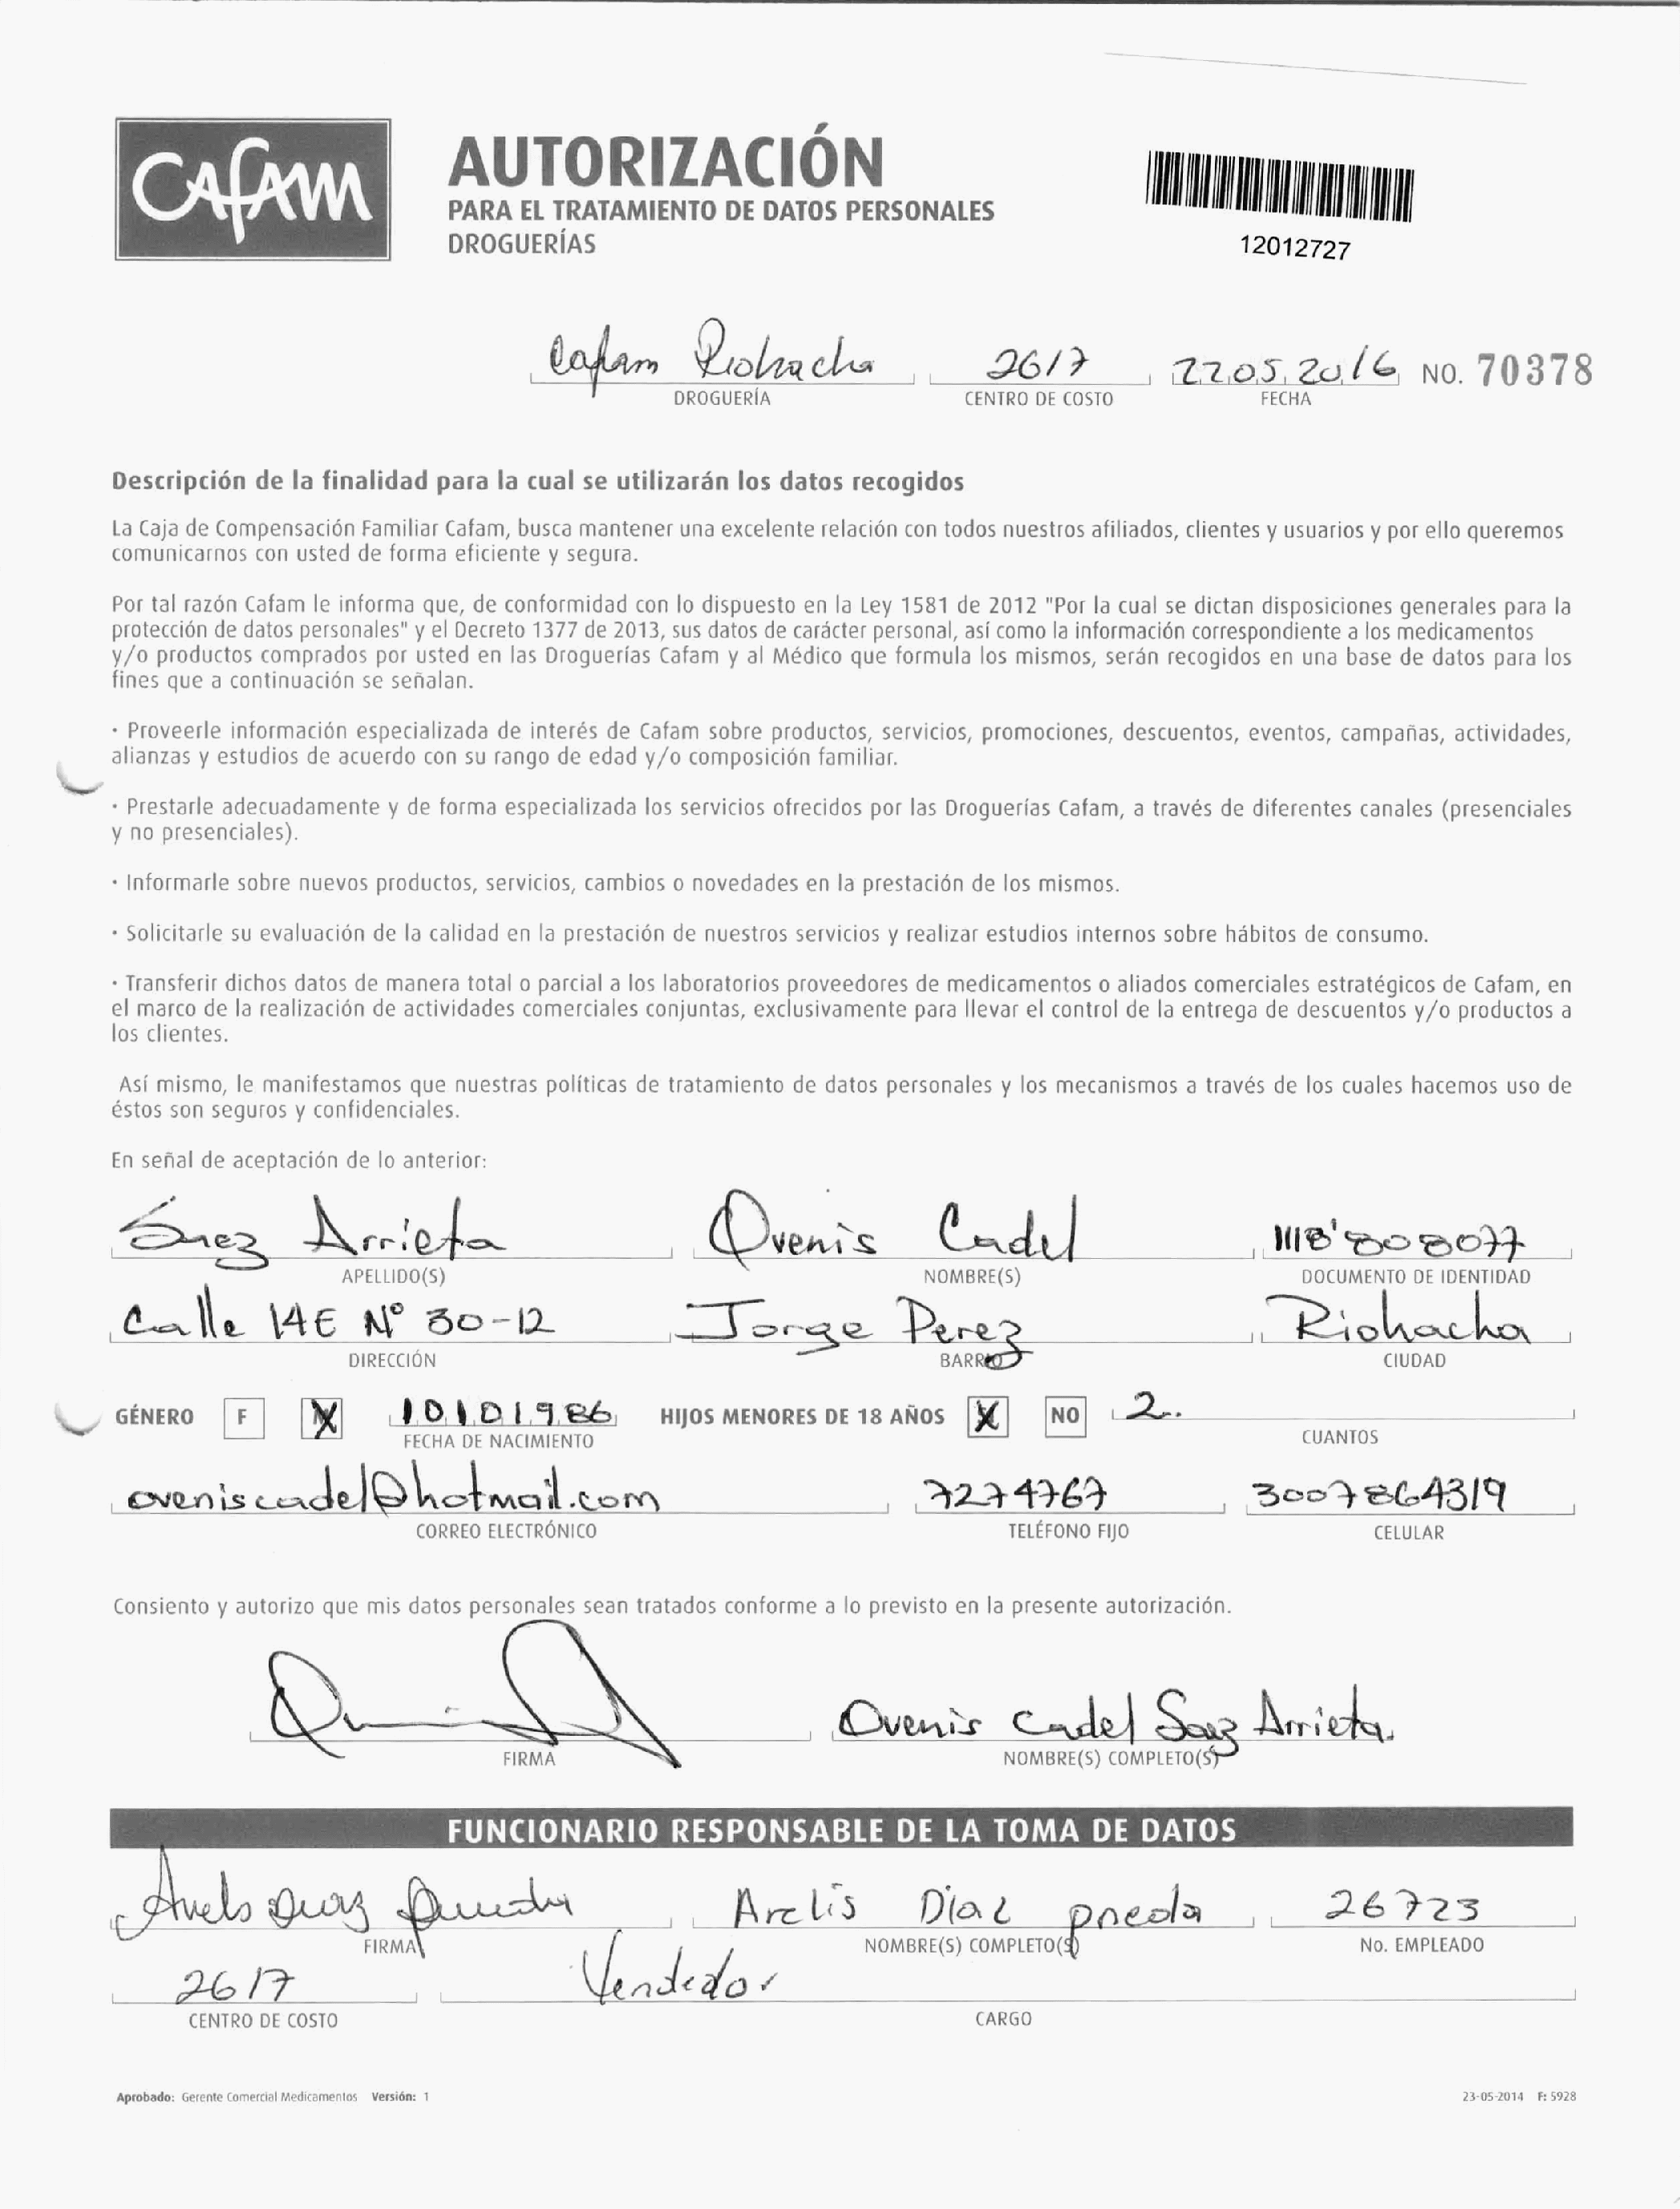 CAFAM
AUTORIZACIÓN
PARA EL TRATAMIENTO DE DATOS PERSONALES
DROGUERÍAS
12012727
Cafam Riohacha 2617 22.05.2016 NO. 70378
DROGUERÍA CENTRO DE COSTO FECHA
Descripción de la finalidad para la cual se utilizarán los datos recogidos
La Caja de Compensación Familiar Cafam, busca mantener una excelente relación con todos nuestros afiliados, clientes y usuarios y por ello queremos
comunicarnos con usted de forma eficiente y segura.
Por tal razón Cafam le informa que, de conformidad con lo dispuesto en la Ley 1581 de 2012 "Por la cual se dictan disposiciones generales para la
protección de datos personales" y el Decreto 1377 de 2013, sus datos de carácter personal, así como la información correspondiente a los medicamentos
y/o productos comprados por usted en las Droguerías Cafam y al Médico que formula los mismos, serán recogidos en una base de datos para los
fines que a continuación se señalan.
· Proveerle información especializada de interés de Cafam sobre productos, servicios, promociones, descuentos, eventos, campañas, actividades,
alianzas y estudios de acuerdo con su rango de edad y/o composición familiar.
· Prestarle adecuadamente y de forma especializada los servicios ofrecidos por las Droguerías Cafam, a través de diferentes canales (presenciales
y no presenciales).
· Informarle sobre nuevos productos, servicios, cambios o novedades en la prestación de los mismos.
· Solicitarle su evaluación de la calidad en la prestación de nuestros servicios y realizar estudios internos sobre hábitos de consumo.
· Transferir dichos datos de manera total o parcial a los laboratorios proveedores de medicamentos o aliados comerciales estratégicos de Cafam, en
el marco de la realización de actividades comerciales conjuntas, exclusivamente para llevar el control de la entrega de descuentos y/o productos a
los clientes.
Así mismo, le manifestamos que nuestras políticas de tratamiento de datos personales y los mecanismos a través de los cuales hacemos uso de
éstos son seguros y confidenciales.
En señal de aceptación de lo anterior:
Arrieta Ovenis Cadel 1118'808077
APELLIDO(S) NOMBRE(S) DOCUMENTO DE IDENTIDAD
Calle 14E N° 30-12 Jorge Perez Riohacha
DIRECCIÓN BARRIO CIUDAD
GÉNERO F X 10101986 HIJOS MENORES DE 18 AÑOS X NO 2.
FECHA DE NACIMIENTO CUANTOS
oveniscadel@hotmail.com 7274767 3007864319
CORREO ELECTRÓNICO TELÉFONO FIJO CELULAR
Consiento y autorizo que mis datos personales sean tratados conforme a lo previsto en la presente autorización.
Ovenis Cadel Arrieta.
FIRMA NOMBRE(S) COMPLETO(S)
FUNCIONARIO RESPONSABLE DE LA TOMA DE DATOS
Arelis Diaz 26723
FIRMA NOMBRE(S) COMPLETO(S) No. EMPLEADO
2617 Vendedor
CENTRO DE COSTO CARGO
Aprobado: Gerente Comercial Medicamentos Versión: 1 23-05-2014 F: 5928